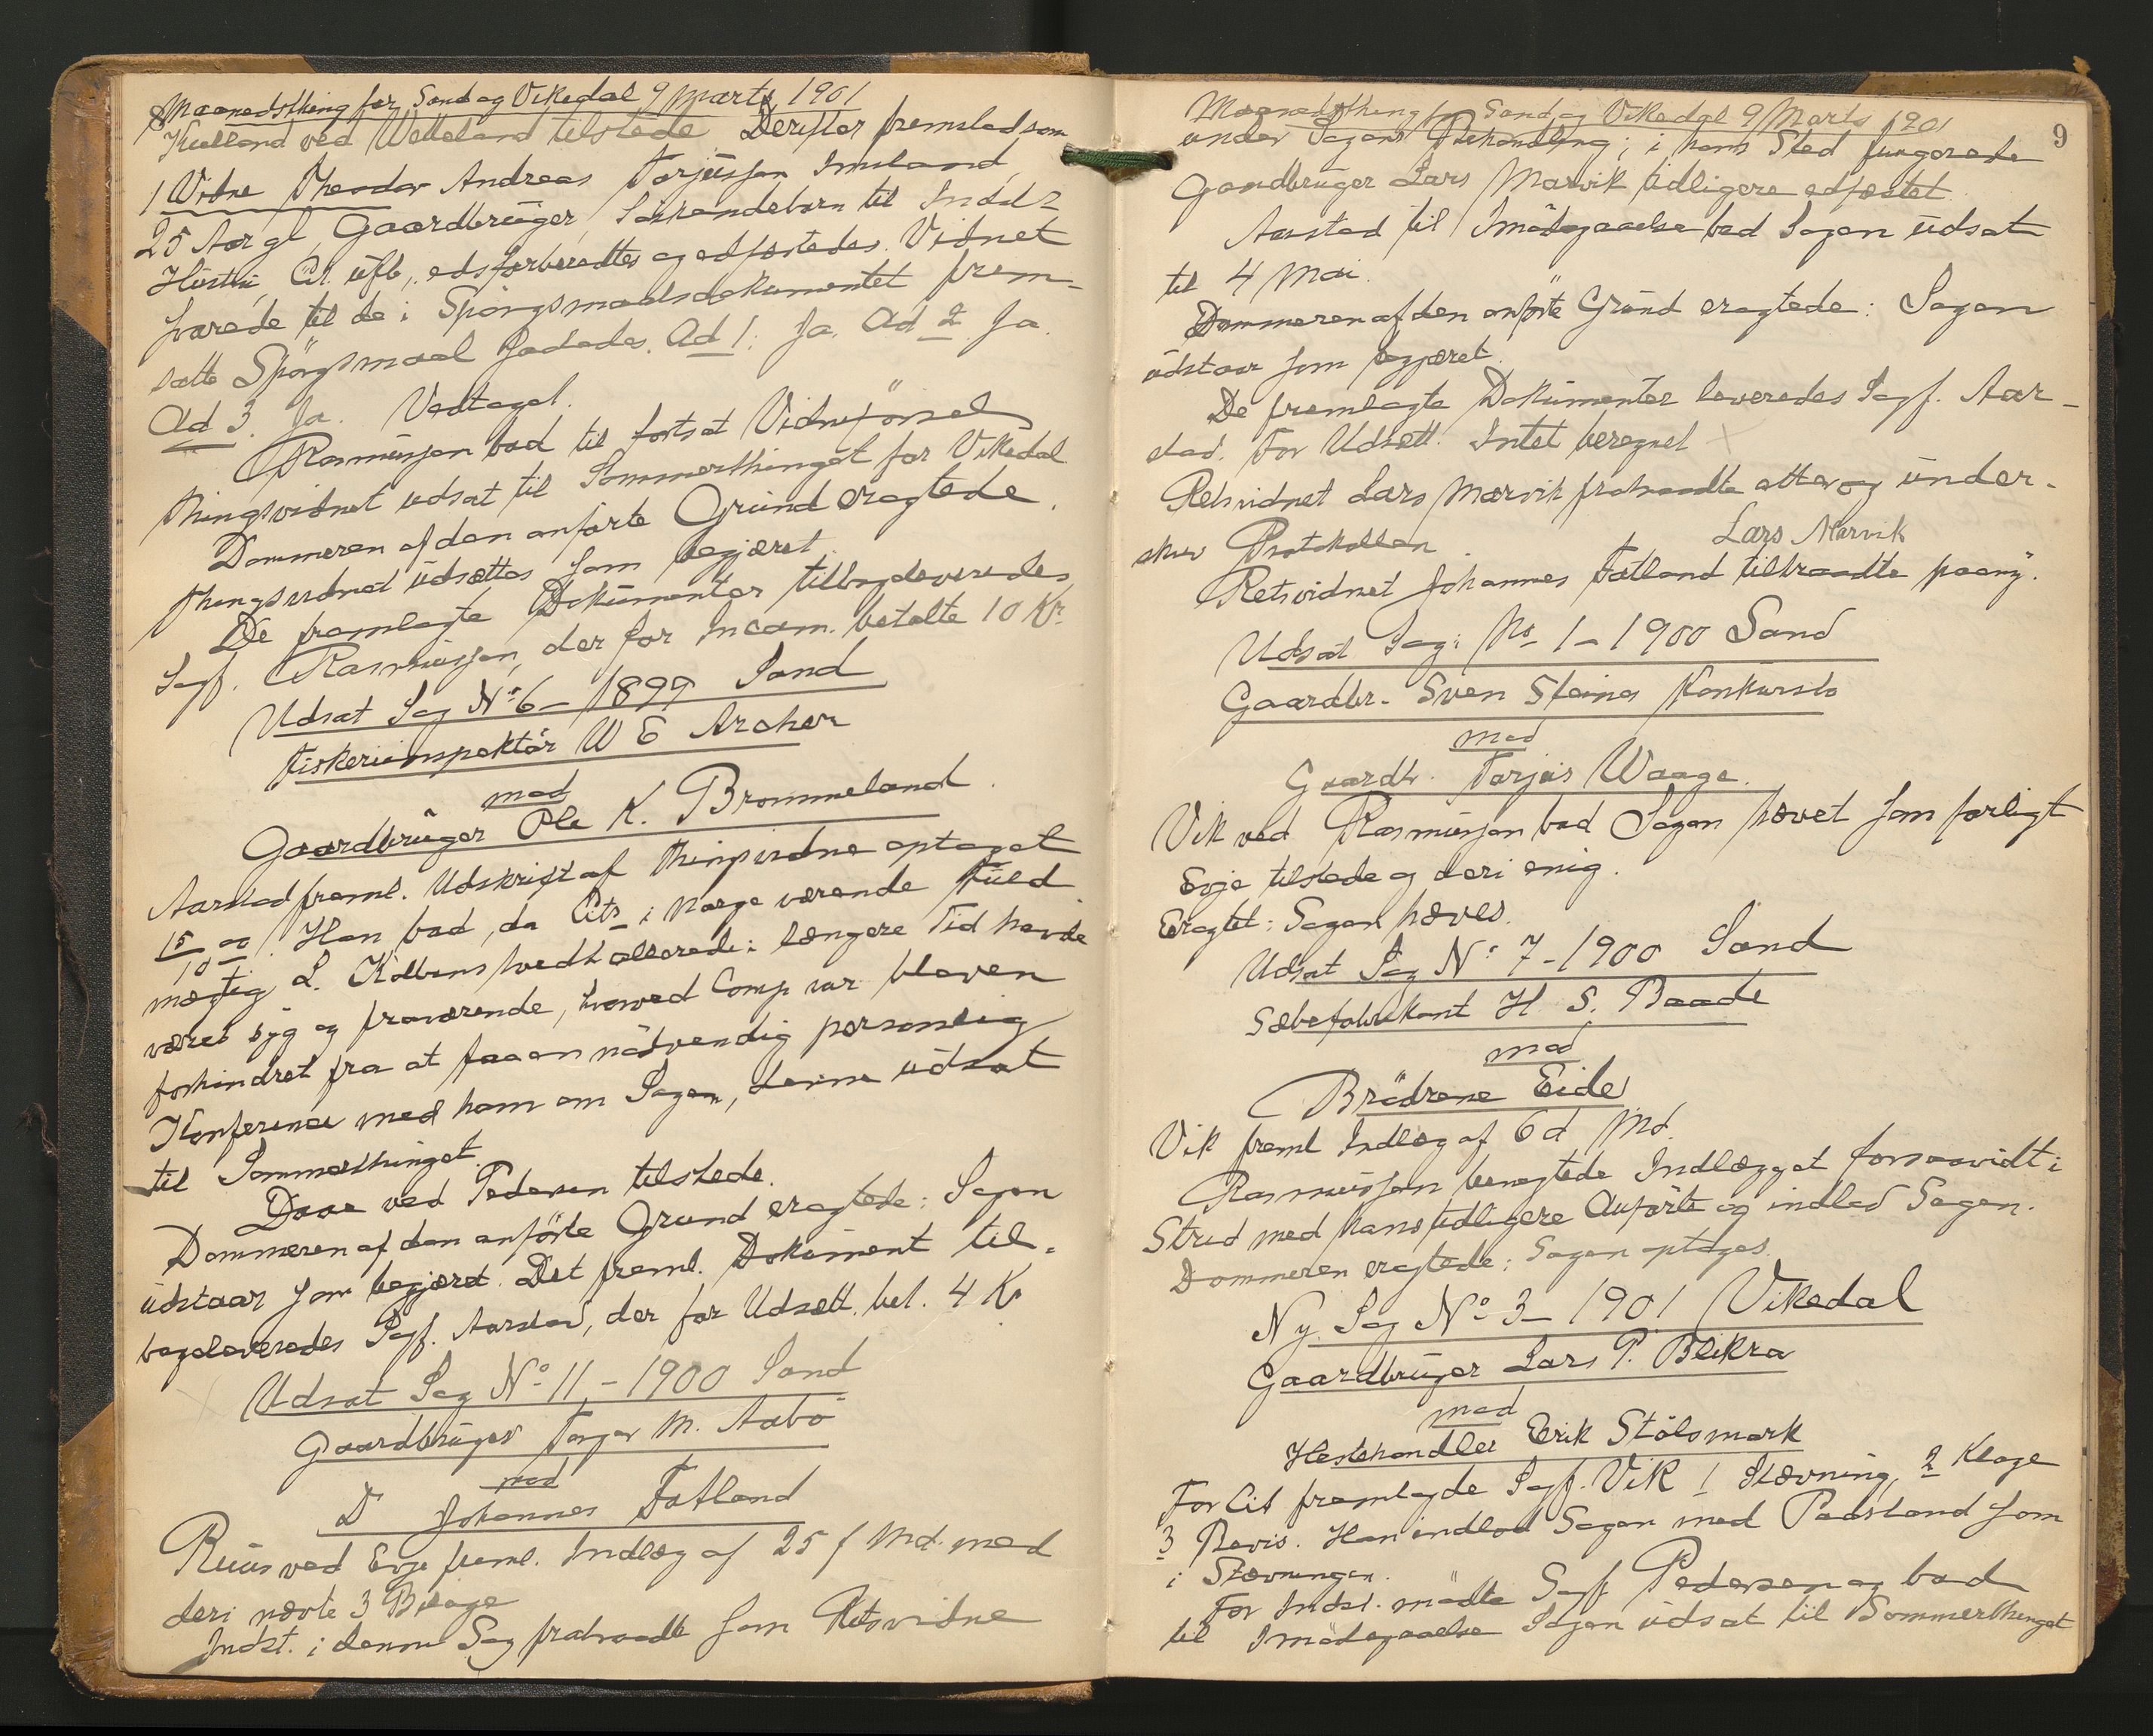 Maanedsthing for Sand og Vikedal 9 Marts 1901
Kulland ved Welleland tilstede. Derefter fremstod som
1 Vidne Theodor Andreas Torjusjen Imsland,
25 Aar gl, Gaardbruger, Søskendebarn til Indst
Hustru, Cit. ufb., edsforberedtes og edfæstedes. Vidnet
svarede til de i Spörgsmaalsdokumentet frem-
satte Spörgsmaal saaledes. Ad 1: Ja. Ad 2 Ja.
Ad 3. Ja. Vedtaget.
Rasmussen bad til fortsat Vidneförsel
thingsvidnet udsat til Sommerthinget for Vikedal.
Dommeren af den anförte Grund eragtede
thingsvidnet udsættes som begjæret.
De fremlagte Dokumenter tilbageleveredes
Sagf. Rasmussen, der for Incam. betalte 10 Kr.
Udsat Sag No 6 - 1899 Sand
Fiskeriinspektör W E Archer
mod
Gaardbrüger Ole K. Brommeland.
Aarstad freml. Udskrift af thingsvidne optaget
15/10 00. Han bad, da Cits i Norge værende Fuld-
mægtig L. Kolbens hvedt allerede i længere Tid havde
været syg og fraværende, hvorved Comp var bleven
forhindret fra at faa en nödvendig personlig
Konference med ham om Sagen, denne udsat
til Sommerthinget.
Daae ved Pedersen tilstede.
Dommeren af den anförte Grund eragtede: Sagen
udstaar som begjæret. Det freml. Dokument til-
bageleveredes Sagf. Aarstad, der for Udsætt. bet. 4 Kr
Udsat Sag No 11 - 1900 Sand
Gaardbrüger Torger M. Aabö
mod
Do Johannes Fatland
Ruus ved Evje freml. Indlæg af 25 f Md. med
deri nævte 3 Bilage
Indst. i denne Sag fratraadte som Retsvidne
9
Maanedsthing for Sand og Vikedal 9 Marts 1901
under Sagens Behandling; i hans Sted fungerede
Gaardbruger Lars Marvik tidligere edfæstet.
Aarstad til Imödegaaelse bad Sagen udsat
til 4 Mai.
Dommeren af den anförte Grund eragtede: Sagen
udstaar som begjæret.
De fremlagte Dokumenter leveredes Sagf. Aar-
stad. For Udsætt. Intet beregnet
Retsvidnet Lars Marvik fratraadte atter og under-
skrev Protokollen. Lars Marvik
Retsvidnet Johannes Fatland tiltraadte paany.
Udsat Sag: No 1 - 1900 Sand
Gaardbr. Sven Steines Konkursbo
mod
Gaardb. Torjus Waage.
Vik ved Rasmussen bad Sagen hævet som forligt
Evje tilstede og deri enig.
Eragtet: Sagen hæves.
Udsat Sag No: 7 - 1900 Sand
Sæbefabrikant H. S. Baade
mod
Brödrene Eide
Vik freml Indlæg af 6 d Md.
Rasmussen benegtede Indlægget forsaavidt i
Strid med hans tidligere Anförte og indlod Sagen.
Dommeren eragtede: Sagen optages.
Ny Sag No 3 - 1901 Vikedal
Gaardbrüger Lars P. Blikra
mod
Hestehandler Erik Stölsmark
For Cit fremlagde Sagf. Vik 1 Stævning, 2 Klage
3 Bevis. Han indlod Sagen med Paastand som
i Stævningen.
For Indst. mödte Sagf Pedersen og bad
til Imödegaaelse Sagen udsat til Sommerthinget